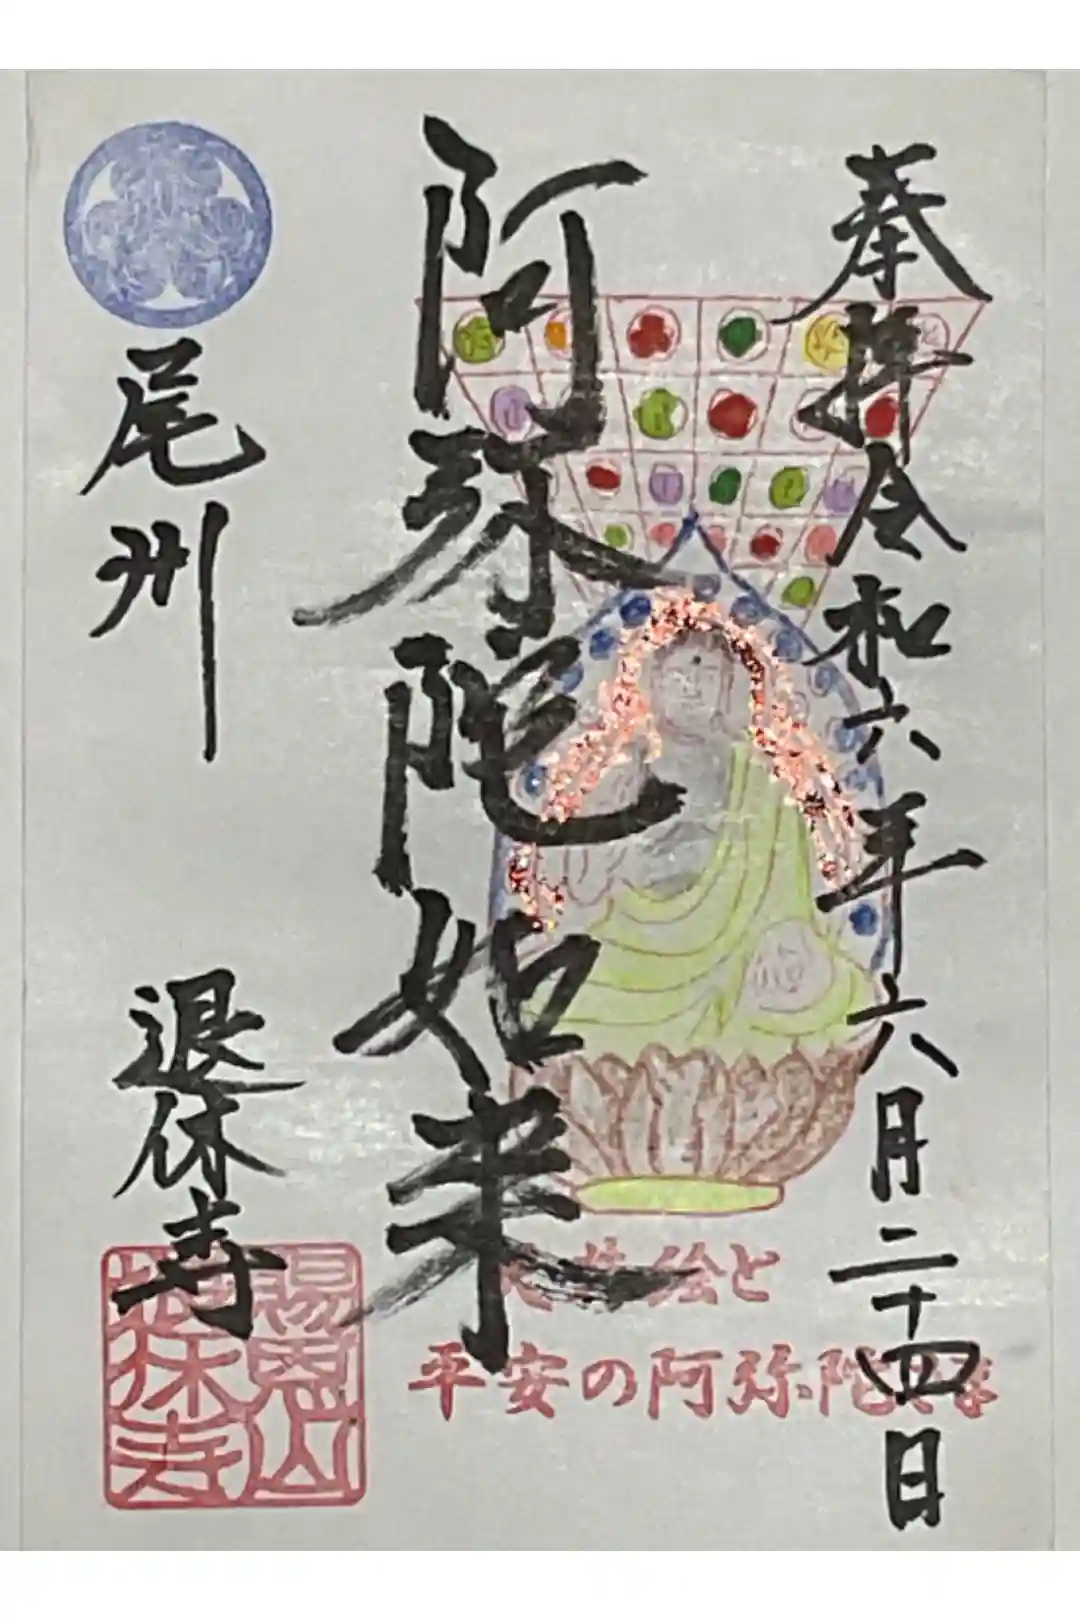 奉拝令和六年六月二十四日
阿弥陀如来
尾州
退休寺
賜恩山
退休寺
絵と
平安の阿弥陀